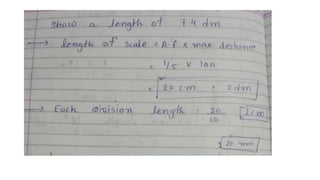 Show a length of 7.4 dm.
→ length of scale = R.f x max distance
= 1/5 x 100
= 20 cm = 2dm
→ Each Division length = 20/10 = 2cm
= 20 mm